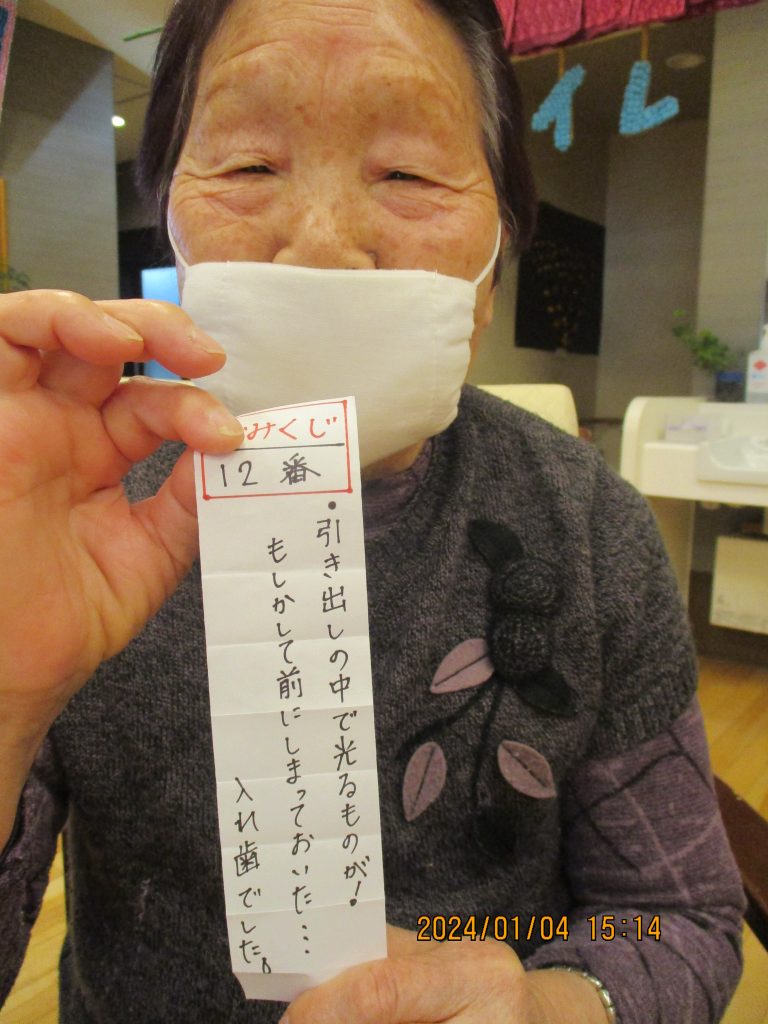 イレ
みくじ
12番
・引き出しの中で光るものが!
もしかして前にしまっておいた…
入れ歯でした。
2024/01/04 15:14